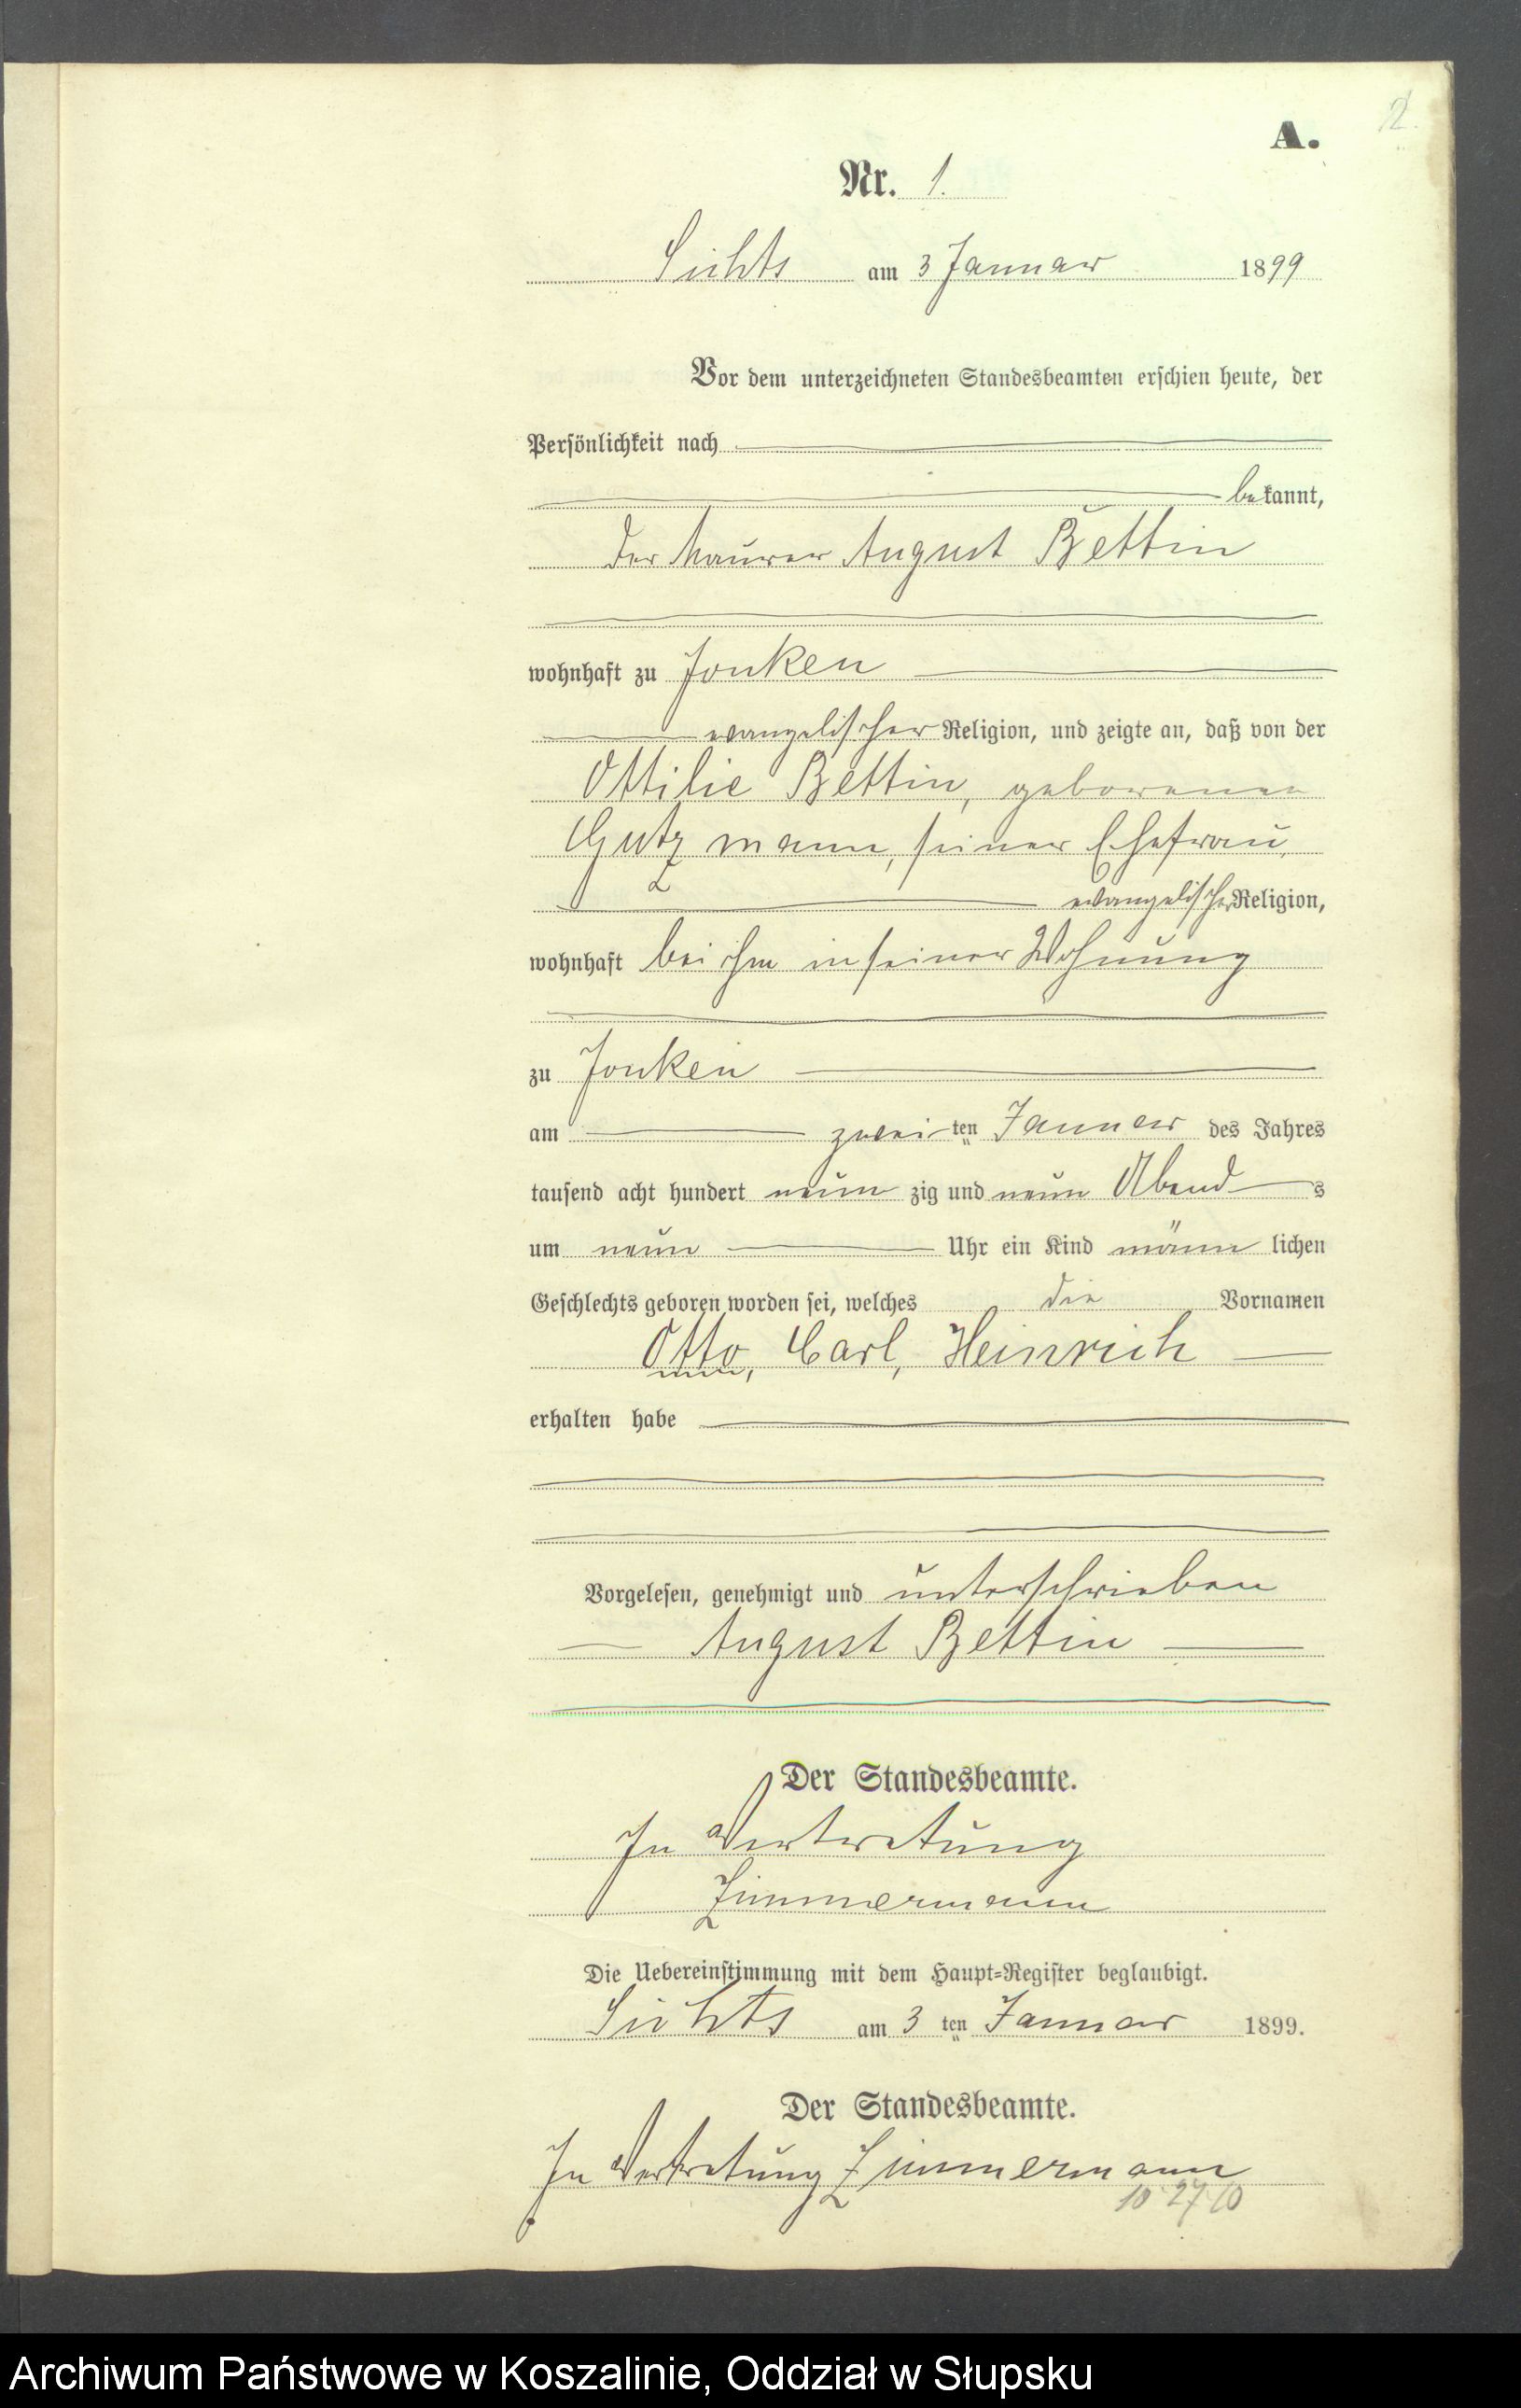 2.
A.
Nr. 1.
Sichts am 3 Januar 1899
Vor dem unterzeichneten Standesbeamten erschien heute, der
Persönlichkeit nach
bekannt,
der Maurer August Bettin
wohnhaft zu Jonken
evangelischer Religion, und zeigte an, daß von der
Ottilie Bettin, geborenen
Gutzmann, seiner Ehefrau,
evangelischer Religion,
wohnhaft bei ihm in seiner Wohnung
zu Jonken
am zweiten Januar des Jahres
tausend acht hundert neun zig und neun Abends
um neun Uhr ein Kind männlichen
Geschlechts geboren worden sei, welches die Vornamen
Otto, Carl, Heinrich
erhalten habe
Vorgelesen, genehmigt und unterschrieben
August Bettin
Der Standesbeamte.
In Vertretung
Zimmermann
Die Uebereinstimmung mit dem Haupt-Register beglaubigt.
Sichts am 3 ten Januar 1899.
Der Standesbeamte.
In Vertretung Zimmermann
10 27 10
Archiwum Państwowe w Koszalinie, Oddział w Słupsku